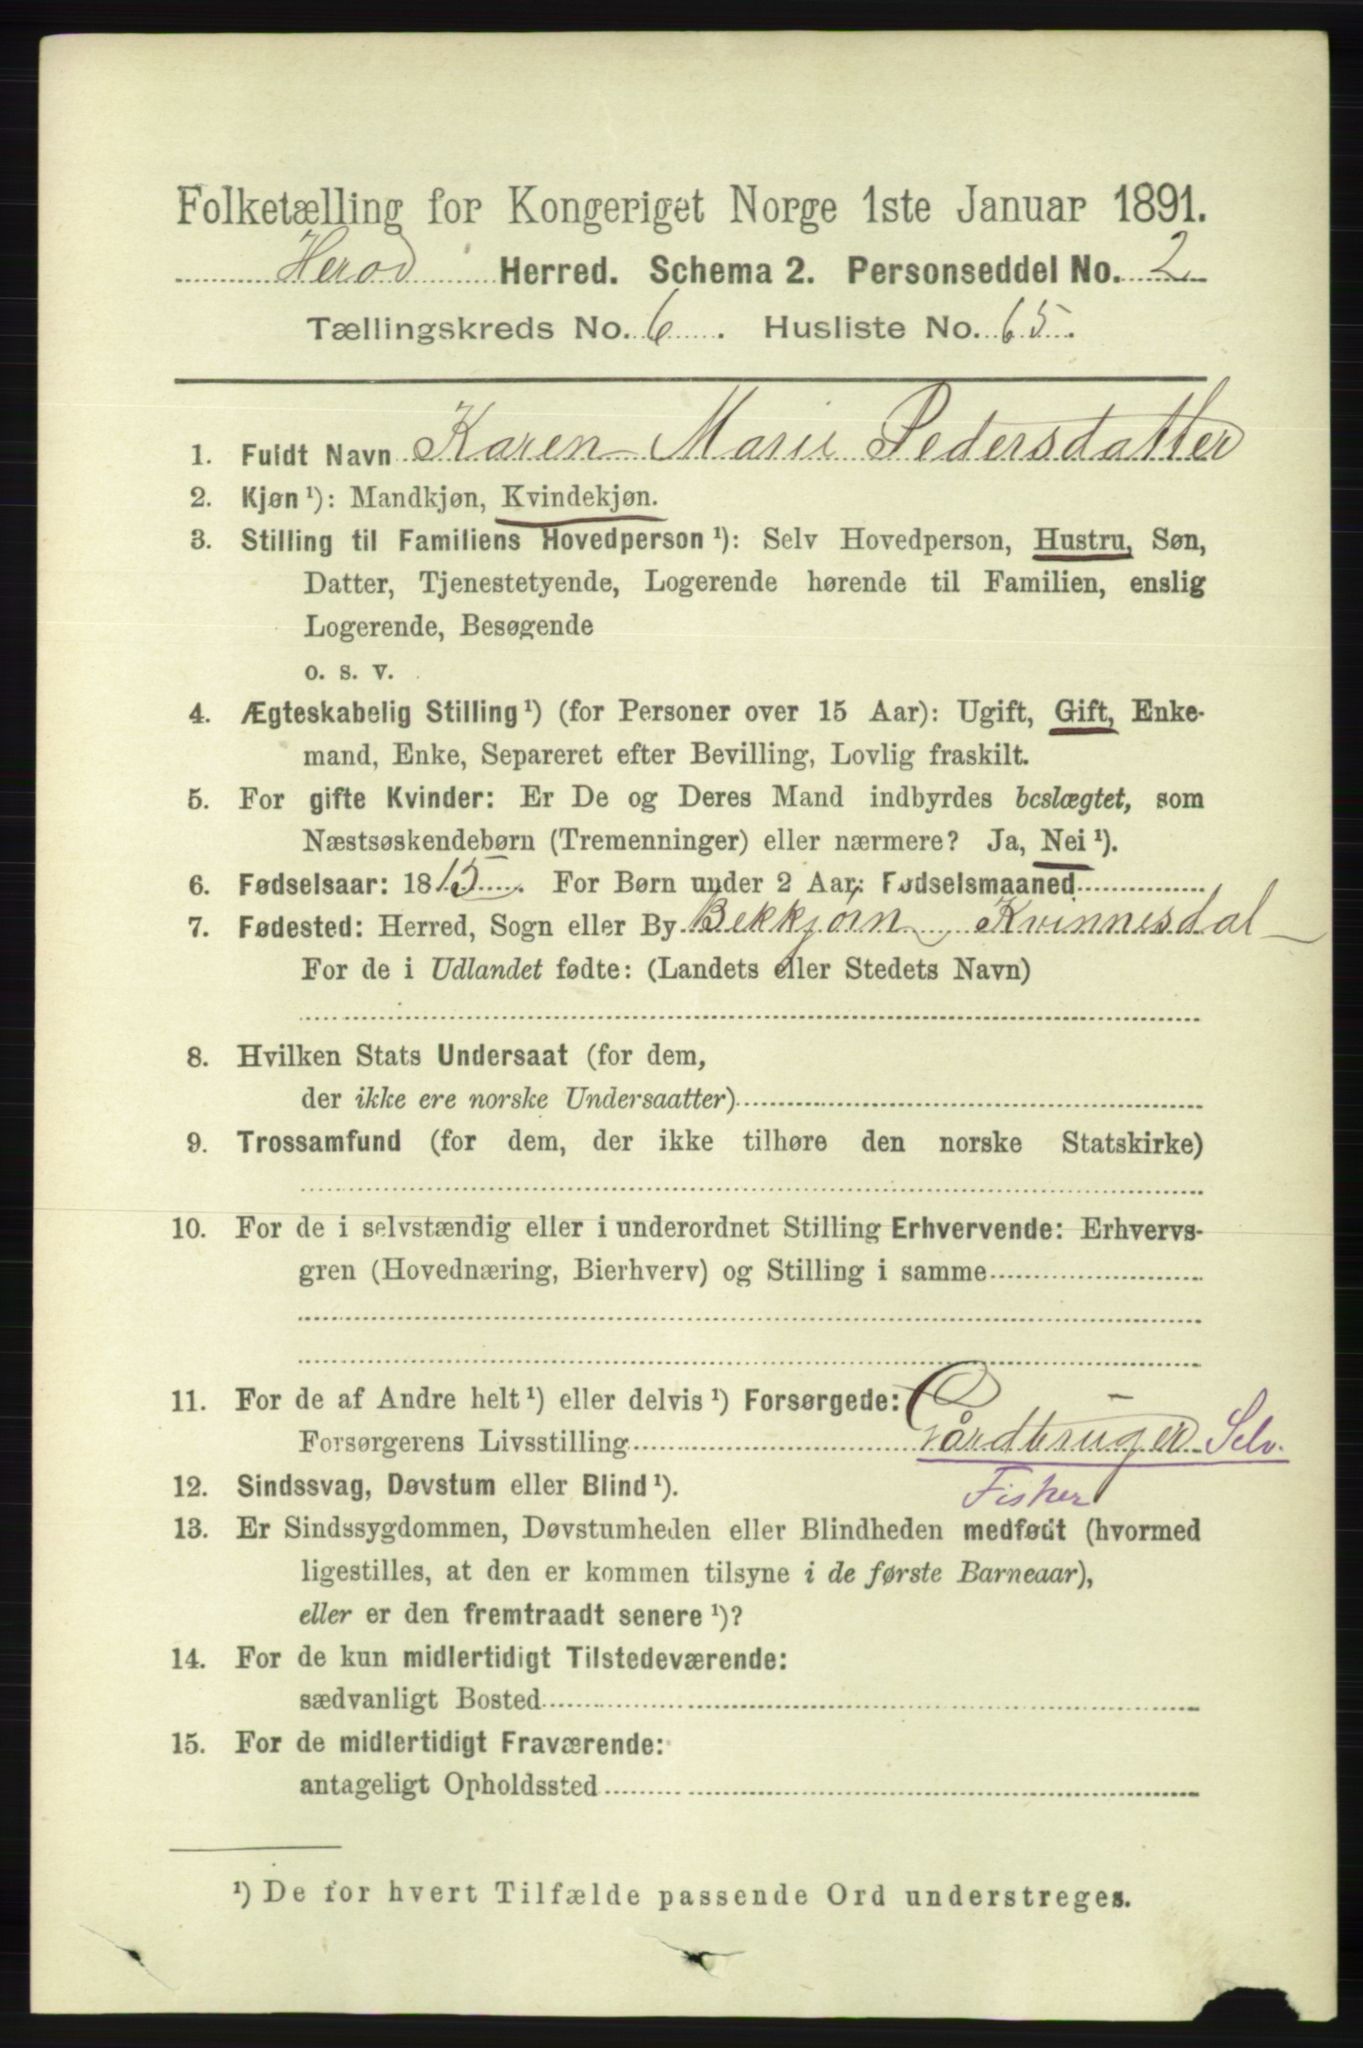 Folketælling for Kongeriget Norge 1ste Januar 1891.
Herod Herred. Schema 2. Personseddel No. 2
Tællingskreds No. 6. Husliste No. 65.
1. Fuldt Navn Karen Marie Pedersdatter
2. Kjøn ¹): Mandkjøn, Kvindekjøn.
3. Stilling til Familiens Hovedperson ¹): Selv Hovedperson, Hustru, Søn,
Datter, Tjenestetyende, Logerende hørende til Familien, enslig
Logerende, Besøgende
o. s. v.
4. Ægteskabelig Stilling ¹) (for Personer over 15 Aar): Ugift, Gift, Enke-
mand, Enke, Separeret efter Bevilling, Lovlig fraskilt.
5. For gifte Kvinder: Er De og Deres Mand indbyrdes beslægtet, som
Næstsøskendebørn (Tremenninger) eller nærmere? Ja, Nei ¹).
6. Fødselsaar: 1815. For Børn under 2 Aar: Fødselsmaaned
7. Fødested: Herred, Sogn eller By Bekkjørn Kvinnesdal
For de i Udlandet fødte: (Landets eller Stedets Navn)
8. Hvilken Stats Undersaat (for dem,
der ikke ere norske Undersaatter)
9. Trossamfund (for dem, der ikke tilhøre den norske Statskirke)
10. For de i selvstændig eller i underordnet Stilling Erhvervende: Erhvervs-
gren (Hovednæring, Bierhverv) og Stilling i samme
11. For de af Andre helt ¹) eller delvis ¹) Forsørgede:
Forsørgerens Livsstilling Gårdbruger Selv.
Fisker
12. Sindssvag, Døvstum eller Blind ¹).
13. Er Sindssygdommen, Døvstumheden eller Blindheden medfødt (hvormed
ligestilles, at den er kommen tilsyne i de første Barneaar),
eller er den fremtraadt senere ¹)?
14. For de kun midlertidigt Tilstedeværende:
sædvanligt Bosted
15. For de midlertidigt Fraværende:
antageligt Opholdssted
¹) De for hvert Tilfælde passende Ord understreges.